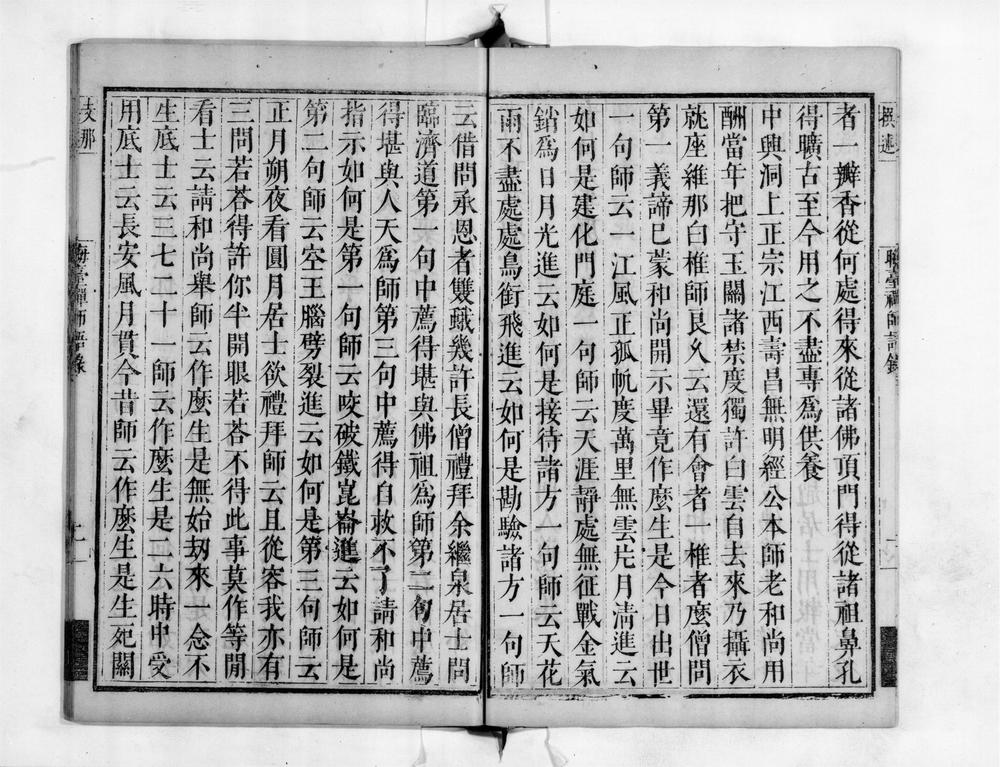 者一瓣香從何處得來從諸佛頂門得從諸祖鼻孔
得曠古至今用之不盡專爲供養
中興洞上正宗江西壽昌無明經公本師老和尚用
酬當年把守玉關諸禁度獨許白雲自去來乃攝衣
就座維那白椎師良久云還有會者一椎者麼僧問
第一義諦已蒙和尚開示畢竟作麼生是今日出世
一句師云一江風正孤帆度萬里無雲片月淸進云
如何是建化門庭一句師云天涯靜處無征戰金氣
銷爲日月光進云如何是接待諸方一句師云天花
雨不盡處處鳥銜飛進云如何是勘驗諸方一句師
云借問承恩者雙蛾幾許長僧禮拜余繼泉居士問
臨濟道第一句中薦得堪與佛祖爲師第二句中薦
得堪與人天爲師第三句中薦得自救不了請和尚
指示如何是第一句師云咬破鐵崑崙進云如何是
第二句師云空王腦劈裂進云如何是第三句師云
正月朔夜看圓月居士欲禮拜師云且從容我亦有
三問若荅得許你半開眼若荅不得此事莫作等閒
看士云請和尚舉師云作麼生是無始刼來一念不
生底士云三七二十一師云作麼生是二六時中受
用底士云長安風月貫今昔師云作麼生是生死關
禪師語錄